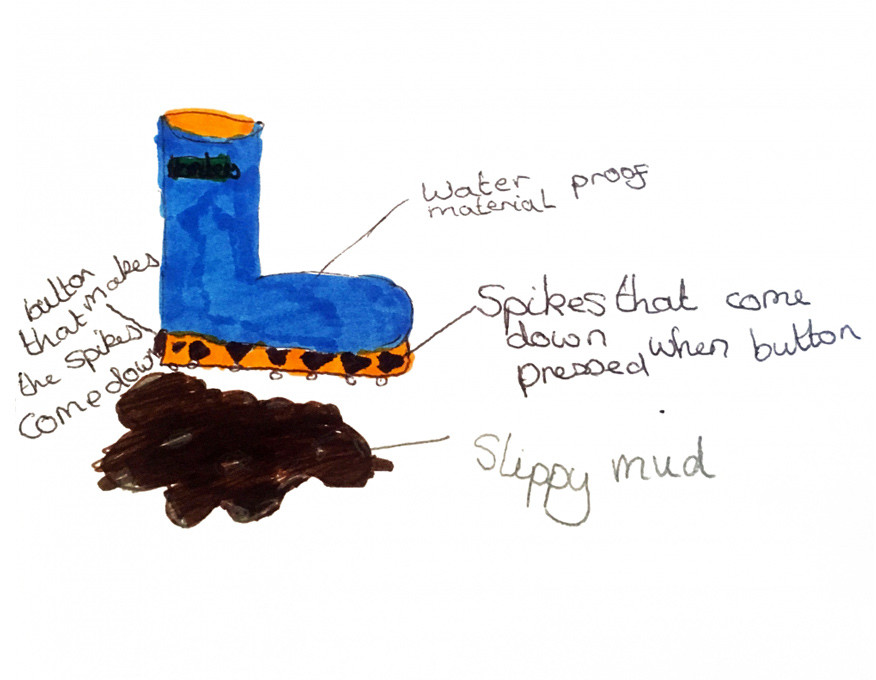 Water proof
material
button
that makes
the spikes
come down
Spikes that come
down when button
pressed
Slippy mud